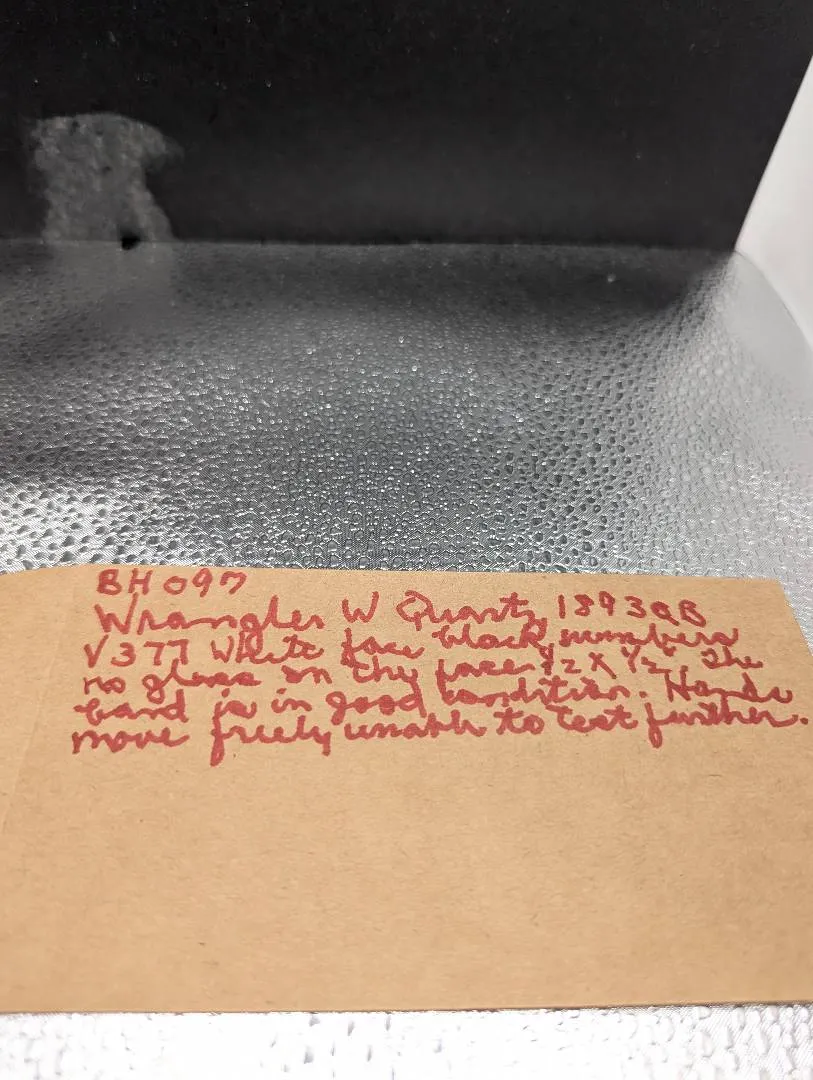 BH 097
Wrangler W Quartz 1893QB
V377 White face black numbers
no glass on the face ½ X ½". The
band is in good condition. Hands
move freely unable to test further.